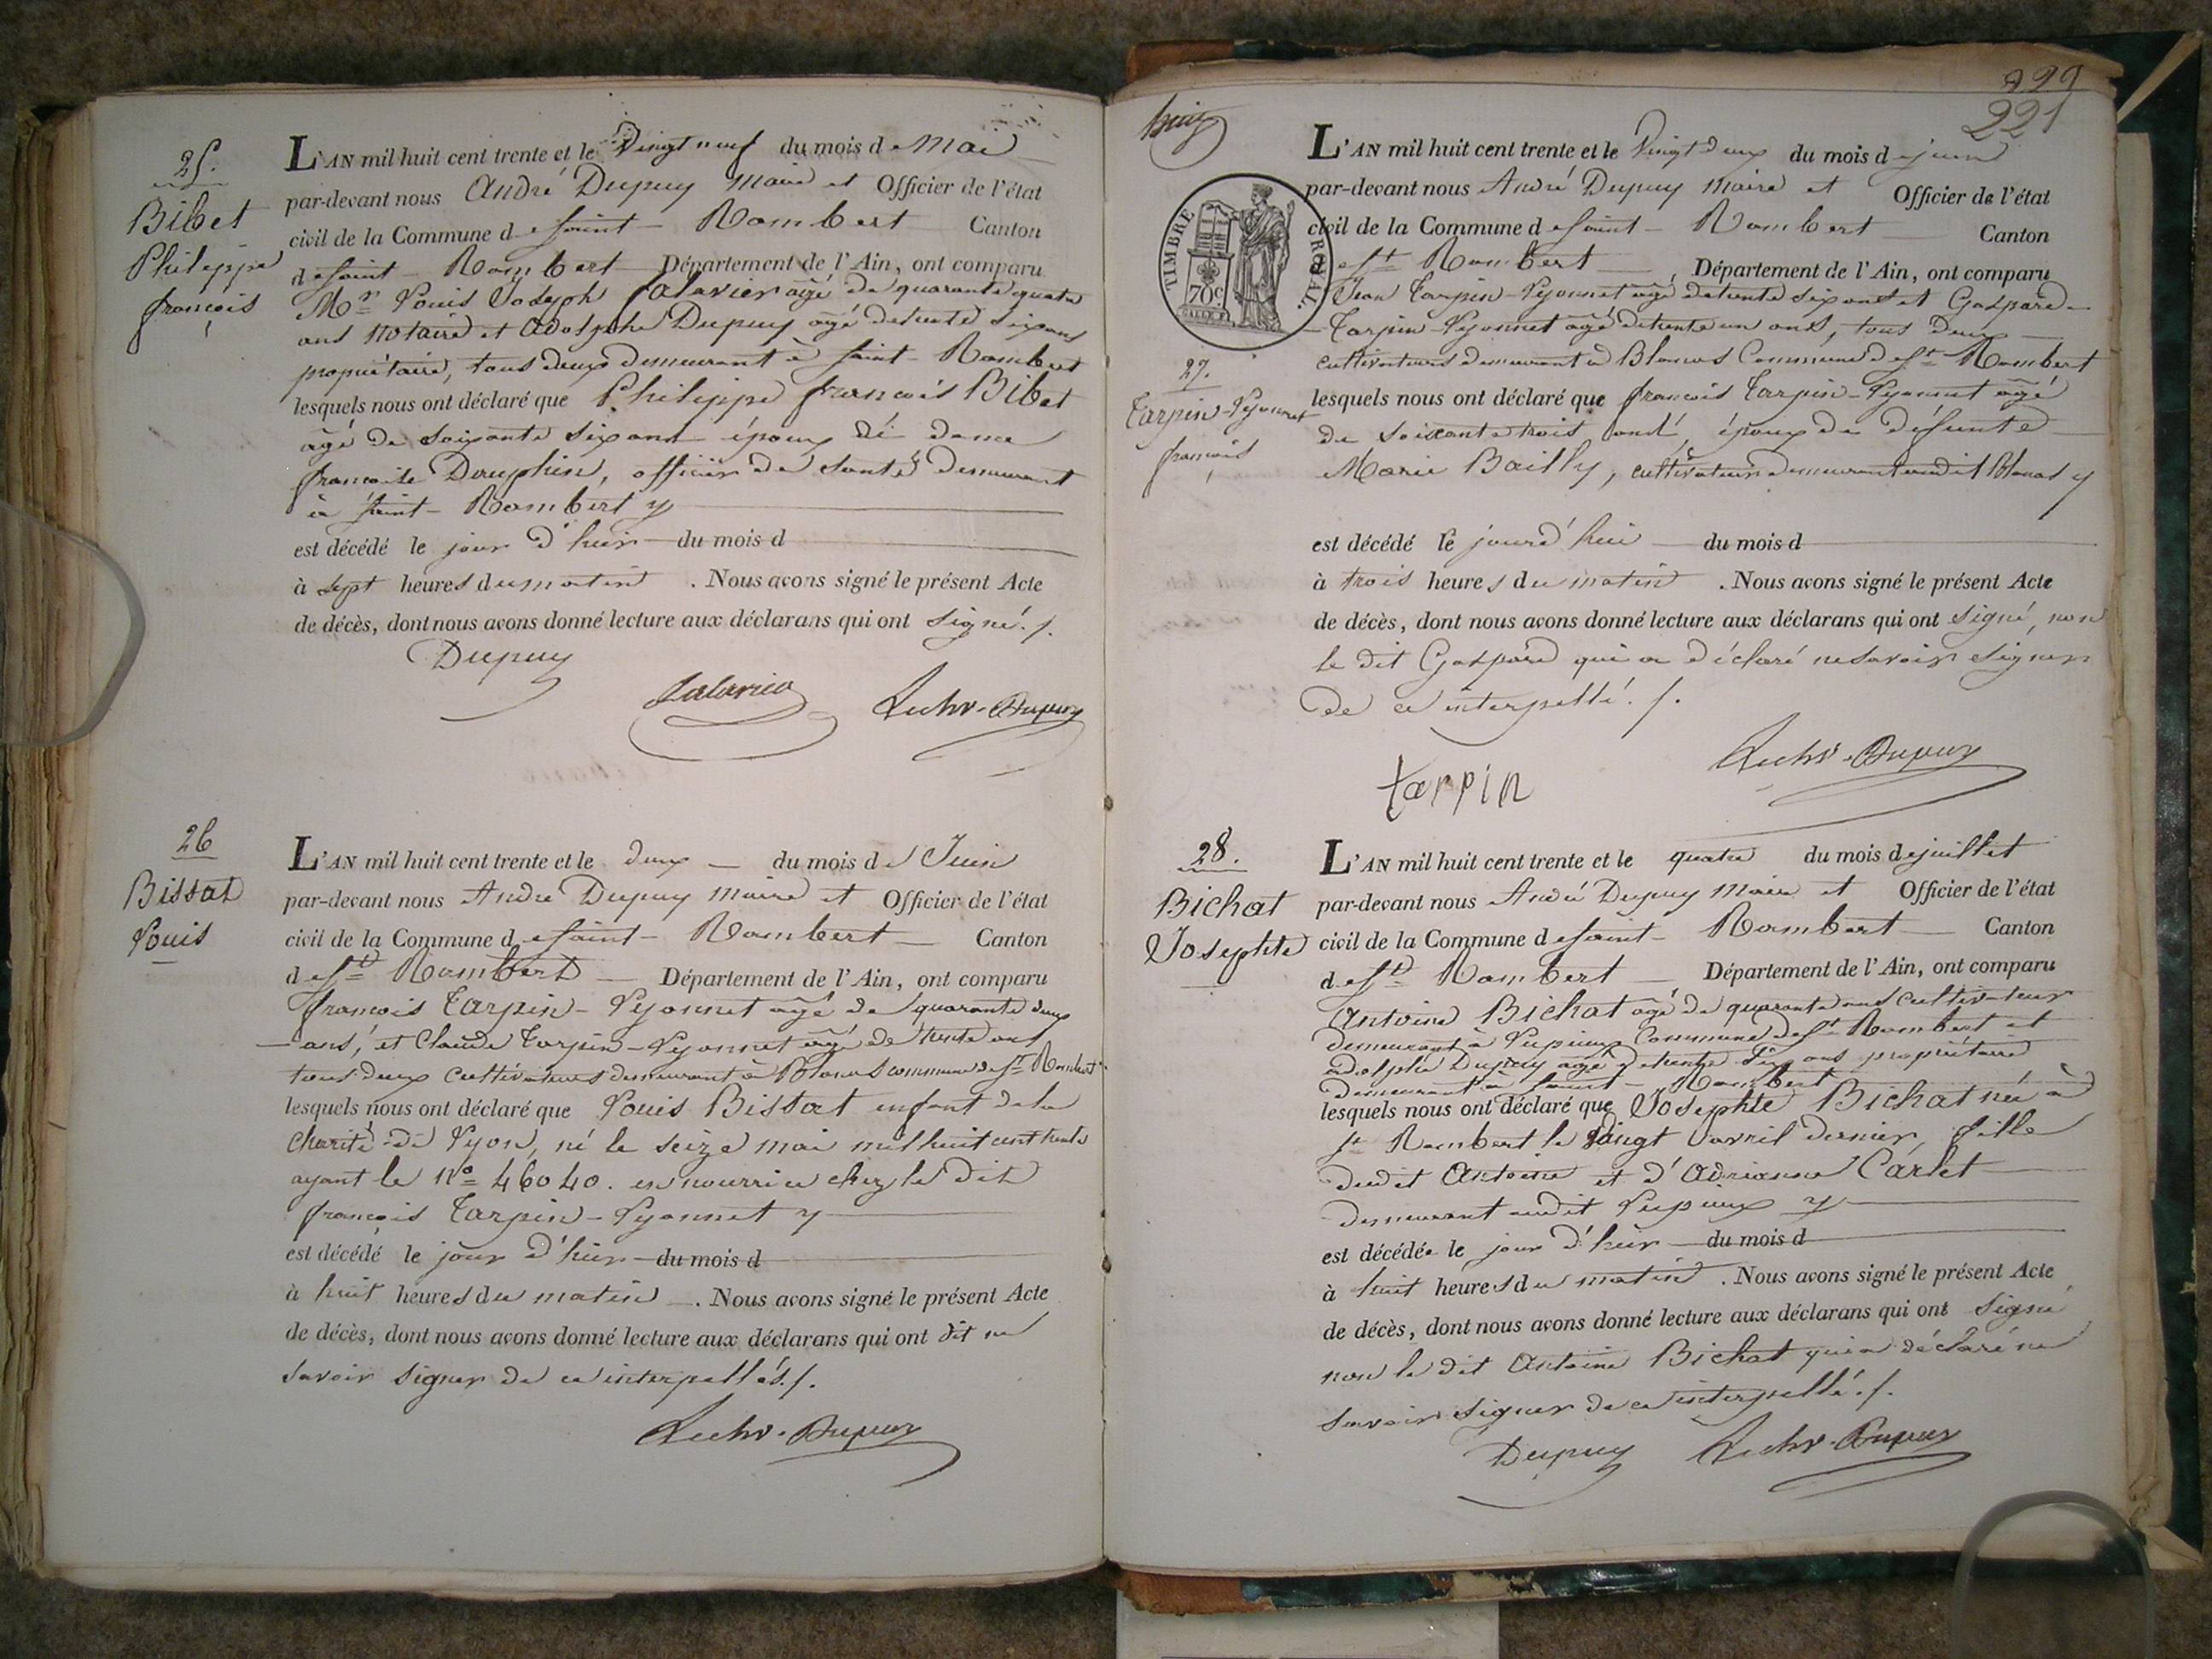 25.
Bibet
Philippe
françois
L'AN mil huit cent trente et le Vingt neuf du mois de Mai
par-devant nous André Dupuy Maire et Officier de l'état
civil de la Commune de Saint-Rambert Canton
de Saint-Rambert Département de l'Ain, ont comparu
Mr Louis Joseph Salavier agé de quarante quatre
ans Notaire et Adolphe Dupuy agé de trente six ans
propriétaire, tous deux demeurant à Saint-Rambert
lesquels nous ont déclaré que Philippe françois Bibet
agé de soixante six ans époux de dame
françoise Dauphin, officier de santé demeurant
à Saint-Rambert
est décédé le jour d'hier du mois d
à sept heures du matin . Nous avons signé le présent Acte
de décès, dont nous avons donné lecture aux déclarans qui ont signé./.
Dupuy
Dupuy
26
Bissat
Louis
L'AN mil huit cent trente et le deux du mois de Juin
par-devant nous André Dupuy Maire et Officier de l'état
civil de la Commune de Saint-Rambert Canton
de St Rambert Département de l'Ain, ont comparu
françois Tarpin-Lyonnet agé de quarante deux
ans, et Claude Tarpin-Lyonnet agé de trente ans
tous deux cultivateurs demeurant à Blanas commune de St Rambert
lesquels nous ont déclaré que Louis Bissat enfant de la
charité de Lyon, né le seize mai mil huit cent trente
ayant le No 46040. en nourrice chez le dit
françois Tarpin-Lyonnet
est décédé le jour d'hier du mois d
à huit heures du matin . Nous avons signé le présent Acte
de décès, dont nous avons donné lecture aux déclarans qui ont dit ne
savoir signer de ce interpellés./.
Dupuy
229
221
huit
TIMBRE ROYAL.
70c
27.
Tarpin-Lyonnet
françois
L'AN mil huit cent trente et le Vingt deux du mois de juin
par-devant nous André Dupuy Maire et Officier de l'état
civil de la Commune de Saint-Rambert Canton
de St Rambert , Département de l'Ain, ont comparu
Jean Tarpin-Lyonnet agé de trente six ans et Gaspard
Tarpin-Lyonnet agé de trente un ans, tous deux
cultivateurs demeurant à Blanas Commune de St Rambert
lesquels nous ont déclaré que françois Tarpin-Lyonnet agé
de soixante trois ans, époux de défunte
Marie Bailly, cultivateur demeurant audit Blanas
est décédé le jourd'hui du mois d
à trois heures du matin . Nous avons signé le présent Acte
de décès, dont nous avons donné lecture aux déclarans qui ont signé, non
le dit Gaspard qui a déclaré ne savoir signer
de ce interpellé./.
tarpin
Dupuy
28.
Bichat
Josephte
L'AN mil huit cent trente et le quatre du mois de juillet
par-devant nous André Dupuy Maire et Officier de l'état
civil de la Commune de Saint-Rambert Canton
de St Rambert , Département de l'Ain, ont comparu
Antoine Bichat agé de quarante ans cultivateur
demeurant à Lupieux Commune de St Rambert et
Adolphe Dupuy agé de trente six ans propriétaire
demeurant à Saint-Rambert
lesquels nous ont déclaré que Josephte Bichat née à
St Rambert le vingt avril dernier, fille
dudit Antoine et d'Adrianne Carlet
demeurant audit Lupieux
est décédée le jour d'hier du mois d
à huit heures du matin . Nous avons signé le présent Acte
de décès, dont nous avons donné lecture aux déclarans qui ont signé
non le dit Antoine Bichat qui a déclaré ne
savoir signer de ce interpellé./.
Dupuy Dupuy